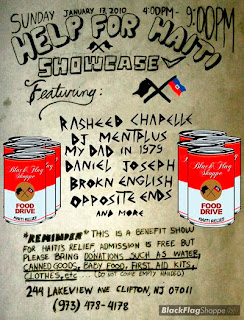 SUNDAY JANUARY 17, 2010 4:00PM - 9:00PM
HELP FOR HAITI
SHOWCASE
Featuring:
RASHEED CHAPELLE
DJ MENTPLUS
MY DAD IN 1979
DANIEL JOSEPH
BROKN ENGLISH
OPPOSITE ENDS
AND MORE
Black Flag
Shoppe
FOOD
DRIVE
HAITI RELIEF
Black Flag
Shoppe
FOOD
DRIVE
HAITI RELIEF
"REMINDER" THIS IS A BENEFIT SHOW
FOR HAITI'S RELIEF. ADMISSION IS FREE BUT
PLEASE BRING DONATIONS SUCH AS WATER,
CANNED GOODS, BABY FOOD, FIRST AID KITS,
CLOTHES, ETC. (DO NOT COME EMPTY HANDED)
244 LAKEVIEW AVE CLIFTON, NJ 07011
(973) 478-4178
BlackFlagShoppe